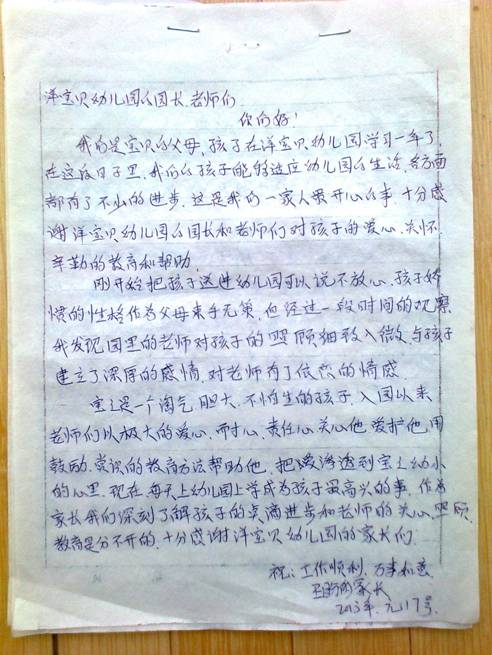 洋宝贝幼儿园的园长.老师们
你们好!
我们是宝贝的父母,孩子在洋宝贝幼儿园学习一年了,
在这段日子里.我们的孩子能够适应幼儿园的生活.各方面
都有了不小的进步.这是我们一家人最开心的事.十分感
谢洋宝贝幼儿园的园长和老师们对孩子的爱心.关怀.
辛勤的教育和帮助.
刚开始把孩子送进幼儿园可以说不放心,孩子娇
惯的性格作为父母束手无策.但经过一段时间的观察
我发现园里的老师对孩子的照顾细致入微,与孩子
建立了深厚的感情.对老师有了依恋的情感
宝宝是一个淘气.胆大.不怕生的孩子,入园以来
老师们以极大的爱心.耐心.责任心关心他爱护他,用
鼓励.赏识的教育方法帮助他.把爱渗透到宝宝幼小
的心里.现在每天上幼儿园上学成为孩子最高兴的事.作为
家长我们深刻了解孩子的点滴进步和老师的关心.照顾.
教育是分不开的.十分感谢洋宝贝幼儿园的家长们.
祝:工作顺利.万事如意
家长
2013年.元17号